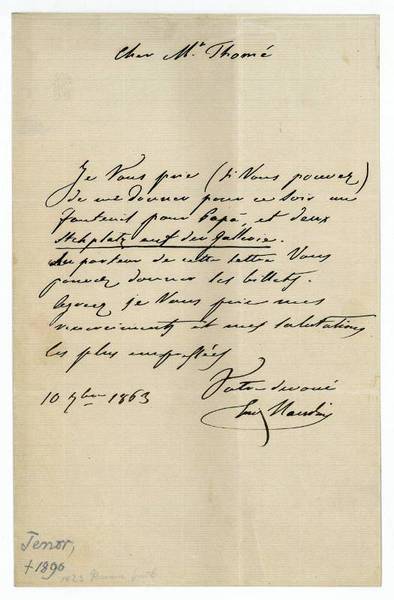 Cher Mr Thomé
Je Vous prie (si Vous pouvez)
de me donner pour ce soir un
fauteuil pour Papá, et deux
Stehplatz auf der Gallerie.
Au porteur de cette lettre Vous
pouvez donner les billets.
Agréez je Vous prie mes
remerciments et mes salutations
les plus empressées
Votre devoué
10 9bre 1863
Tenor,
† 1896